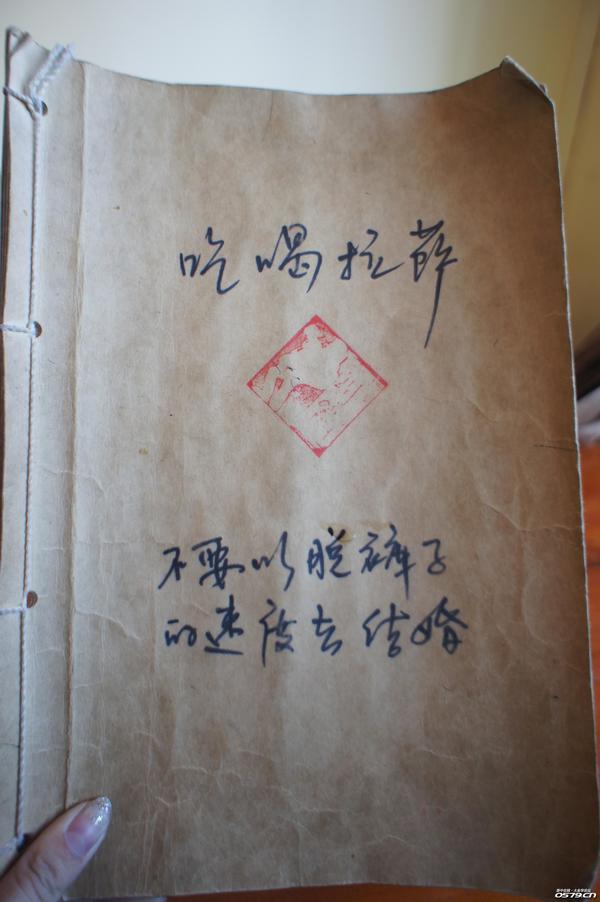 吃喝拉萨
不要以脱裤子
的速度去结婚
0579.CN